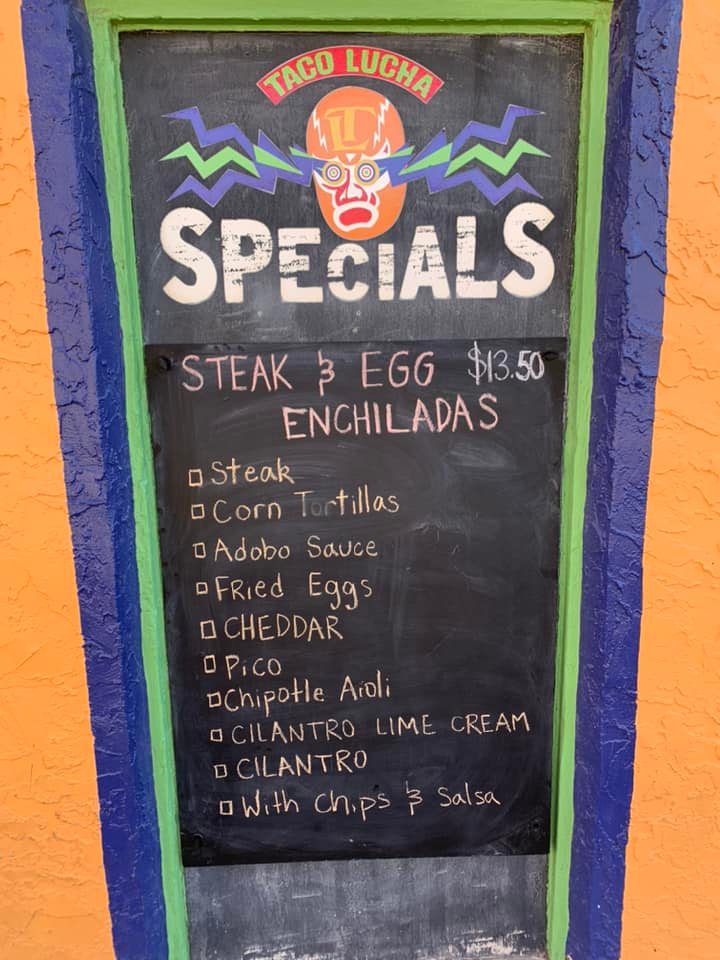 TACO LUCHA
LT
SPECIALS
STEAK & EGG $13.50
ENCHILADAS
□ Steak
□ Corn Tortillas
□ Adobo Sauce
□ FRied Eggs
□ CHEDDAR
□ Pico
□ Chipotle Aioli
□ CILANTRO LIME CREAM
□ CILANTRO
□ With Chips & Salsa